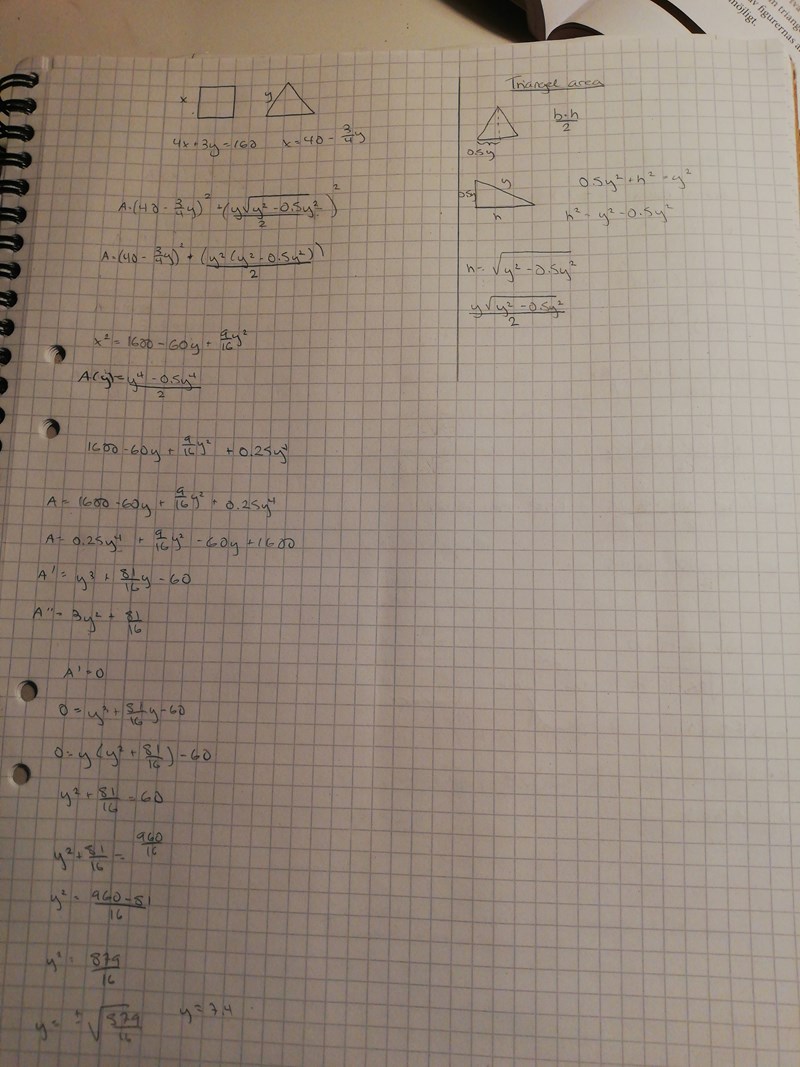 möjligt.
x y
4x+3y=160 x=40 - 3/4y
A=(40 - 3/4y)² + (y√(y² - 0.5y²)/2)²
A=(40 - 3/4y)² + (y²(y² - 0.5y²)/2)
x² = 1600 - 60y + 9/16y²
A(y) = y⁴ - 0.5y⁴/2
1600 - 60y + 9/16y² + 0.25y⁴
A = 1600 - 60y + 9/16y² + 0.25y⁴
A = 0.25y⁴ + 9/16y² - 60y + 1600
A' = y³ + 81/16y - 60
A'' = 3y² + 81/16
A' = 0
0 = y³ + 81/16y - 60
0 = y(y² + 81/16) - 60
y² + 81/16 = 60
y² + 81/16 = 960/16
y² = 960-81/16
y² = 879/16
y = ±√(879/16) y = 7,4
Triangel area
b·h/2
0.5y
0.5y y h
0.5y² + h² = y²
h² = y² - 0.5y²
h = √(y² - 0.5y²)
y√(y² - 0.5y²)/2